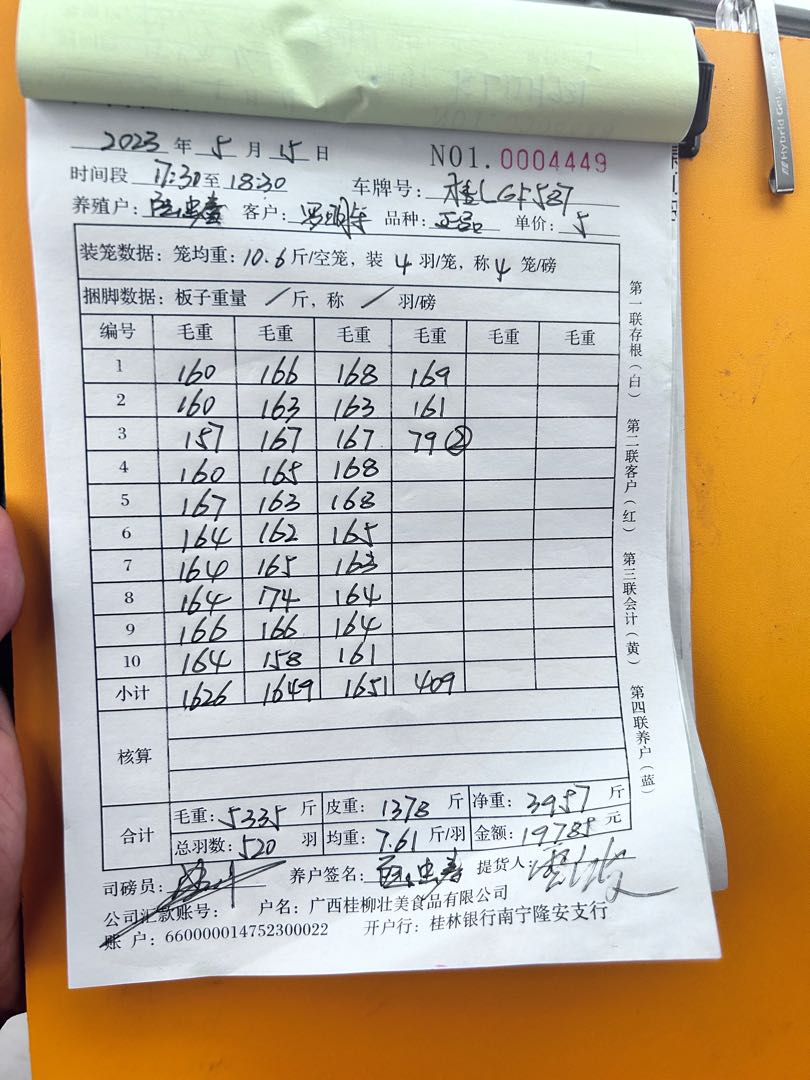 2023 年 5 月 15 日 NO1.0004449
时间段 17:30 至 18:30 车牌号: 桂LGF587
养殖户: 客户: 品种: 正品 单价: 5
装笼数据: 笼均重: 10.6 斤/空笼, 装 4 羽/笼, 称 4 笼/磅
捆脚数据: 板子重量 / 斤, 称 / 羽/磅
编号 毛重 毛重 毛重 毛重 毛重 毛重
1 160 166 168 169
2 160 163 163 161
3 157 167 167 79 ②
4 160 165 168
5 167 163 168
6 164 162 165
7 164 165 163
8 164 174 164
9 166 166 164
10 164 158 161
小计 1626 1649 1651 409
核算
合计 毛重: 5335 斤 皮重: 1378 斤 净重: 3957 斤
总羽数: 520 羽 均重: 7.61 斤/羽 金额: 19785 元
司磅员: 养户签名: 提货人:
公司汇款账号: 户名: 广西桂柳壮美食品有限公司
账 户: 660000014752300022 开户行: 桂林银行南宁隆安支行
第一联存根(白) 第二联客户(红) 第三联会计(黄) 第四联养户(蓝)
Hybrid Gel